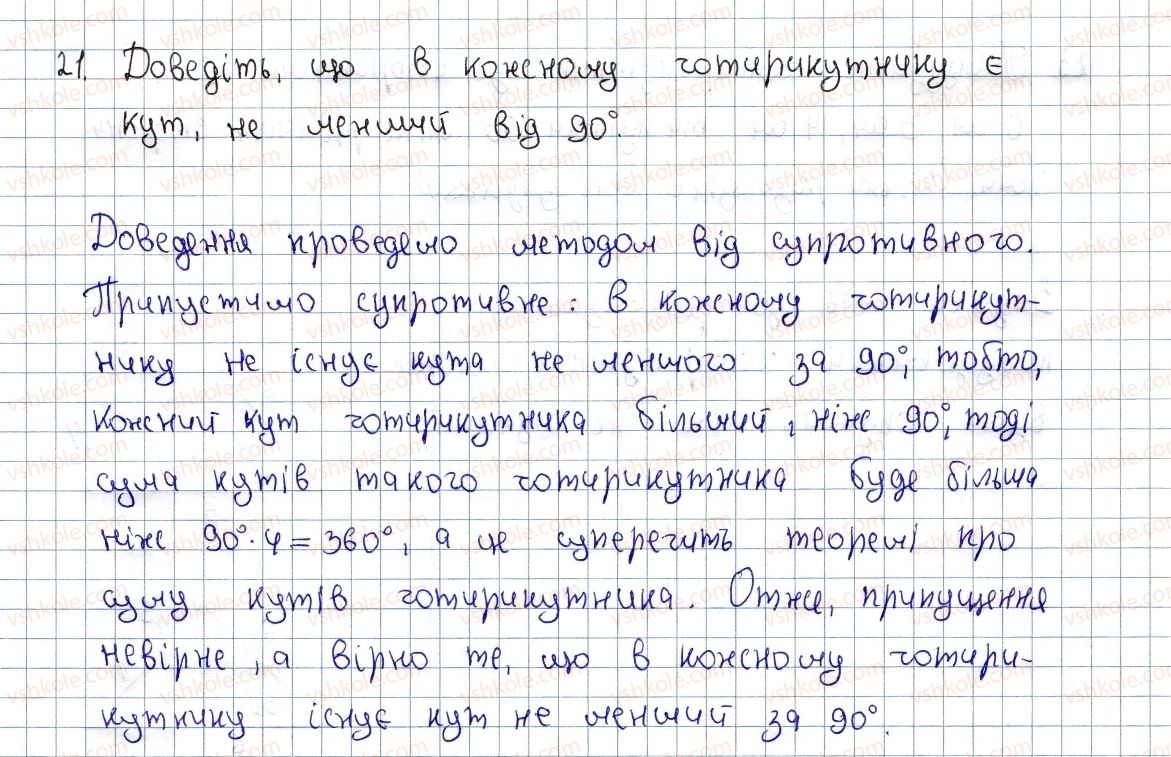 21. Доведіть, що в кожному чотирикутнику є
кут, не менший від 90°.
Доведення проведемо методом від супротивного.
Припустимо супротивне: в кожному чотирикут-
нику не існує кута не меншого за 90°, тобто,
кожний кут чотирикутника більший, ніж 90°, тоді
сума кутів такого чотирикутника буде більша
ніж 90°·4=360°, а це суперечить теоремі про
суму кутів чотирикутника. Отже, припущення
невірне, а вірно те, що в кожному чотири-
кутнику існує кут не менший за 90°.